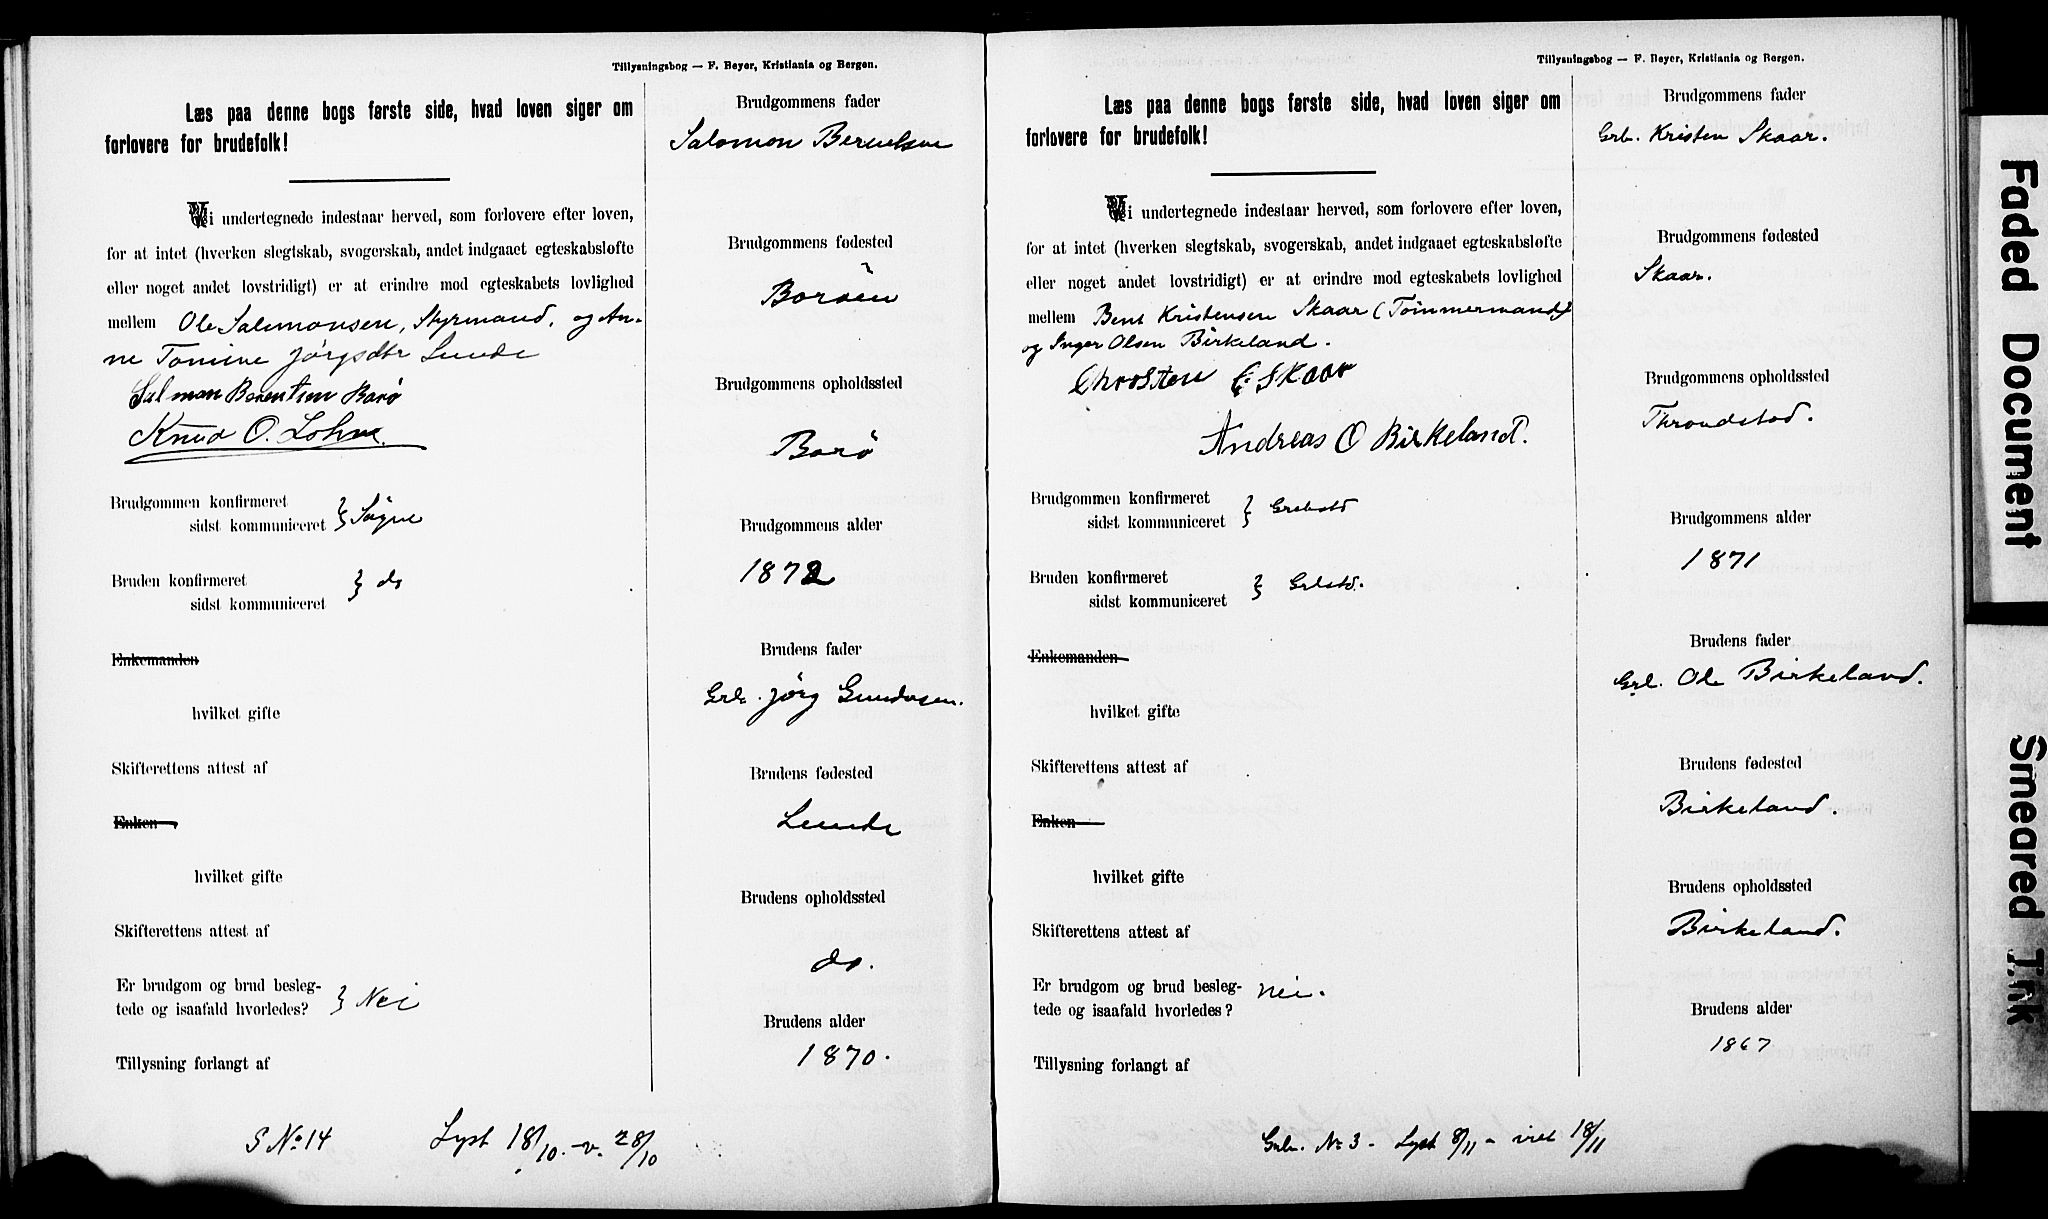 Tillysningsbog — F. Beyer, Kristiania og Bergen.
Læs paa denne bogs første side, hvad loven siger om
forlovere for brudefolk!
Vi undertegnede indestaar herved, som forlovere efter loven,
for at intet (hverken slegtskab, svogerskab, andet indgaaet egteskabsløfte
eller noget andet lovstridigt) er at erindre mod egteskabets lovlighed
mellem Ole Salomonsen, Styrmand, og An-
ne Tomine Jørgsdtr Lunde
Salmon Berentsen Borø
Knud O. Lohne.
Brudgommen konfirmeret
sidst kommuniceret } Søgne
Bruden konfirmeret
sidst kommuniceret } do
Enkemanden
hvilket gifte
Skifterettens attest af
Enken
hvilket gifte
Skifterettens attest af
Er brudgom og brud besleg-
tede og isaafald hvorledes? } Nei
Tillysning forlangt af
S No 14 Lyst 18/10 - v. 28/10
Brudgommens fader
Salomon Berntsen
Brudgommens fødested
Borøen
Brudgommens opholdssted
Borø
Brudgommens alder
1872
Brudens fader
Grb. Jørg Gundersen.
Brudens fødested
Lunde
Brudens opholdssted
do.
Brudens alder
1870.
Tillysningsbog — F. Beyer, Kristiania og Bergen.
Læs paa denne bogs første side, hvad loven siger om
forlovere for brudefolk!
Vi undertegnede indestaar herved, som forlovere efter loven,
for at intet (hverken slegtskab, svogerskab, andet indgaaet egteskabsløfte
eller noget andet lovstridigt) er at erindre mod egteskabets lovlighed
mellem Bent Kristensen Skaar (Tømmermand)
og Inger Olsen Birkeland.
Chrosten C. Skaar
Andreas O Birkeland.
Brudgommen konfirmeret
sidst kommuniceret }
Bruden konfirmeret
sidst kommuniceret }
Enkemanden
hvilket gifte
Skifterettens attest af
Enken
hvilket gifte
Skifterettens attest af
Er brudgom og brud besleg-
tede og isaafald hvorledes? nei.
Tillysning forlangt af
No 3 - Lyst 8/11 - viet 18/11
Brudgommens fader
Grb. Kristen Skaar.
Brudgommens fødested
Skaar.
Brudgommens opholdssted
Throndstad.
Brudgommens alder
1871
Brudens fader
Grb. Ole Birkeland.
Brudens fødested
Birkeland.
Brudens opholdssted
Birkeland.
Brudens alder
1867
Faded Document
Smeared Ink